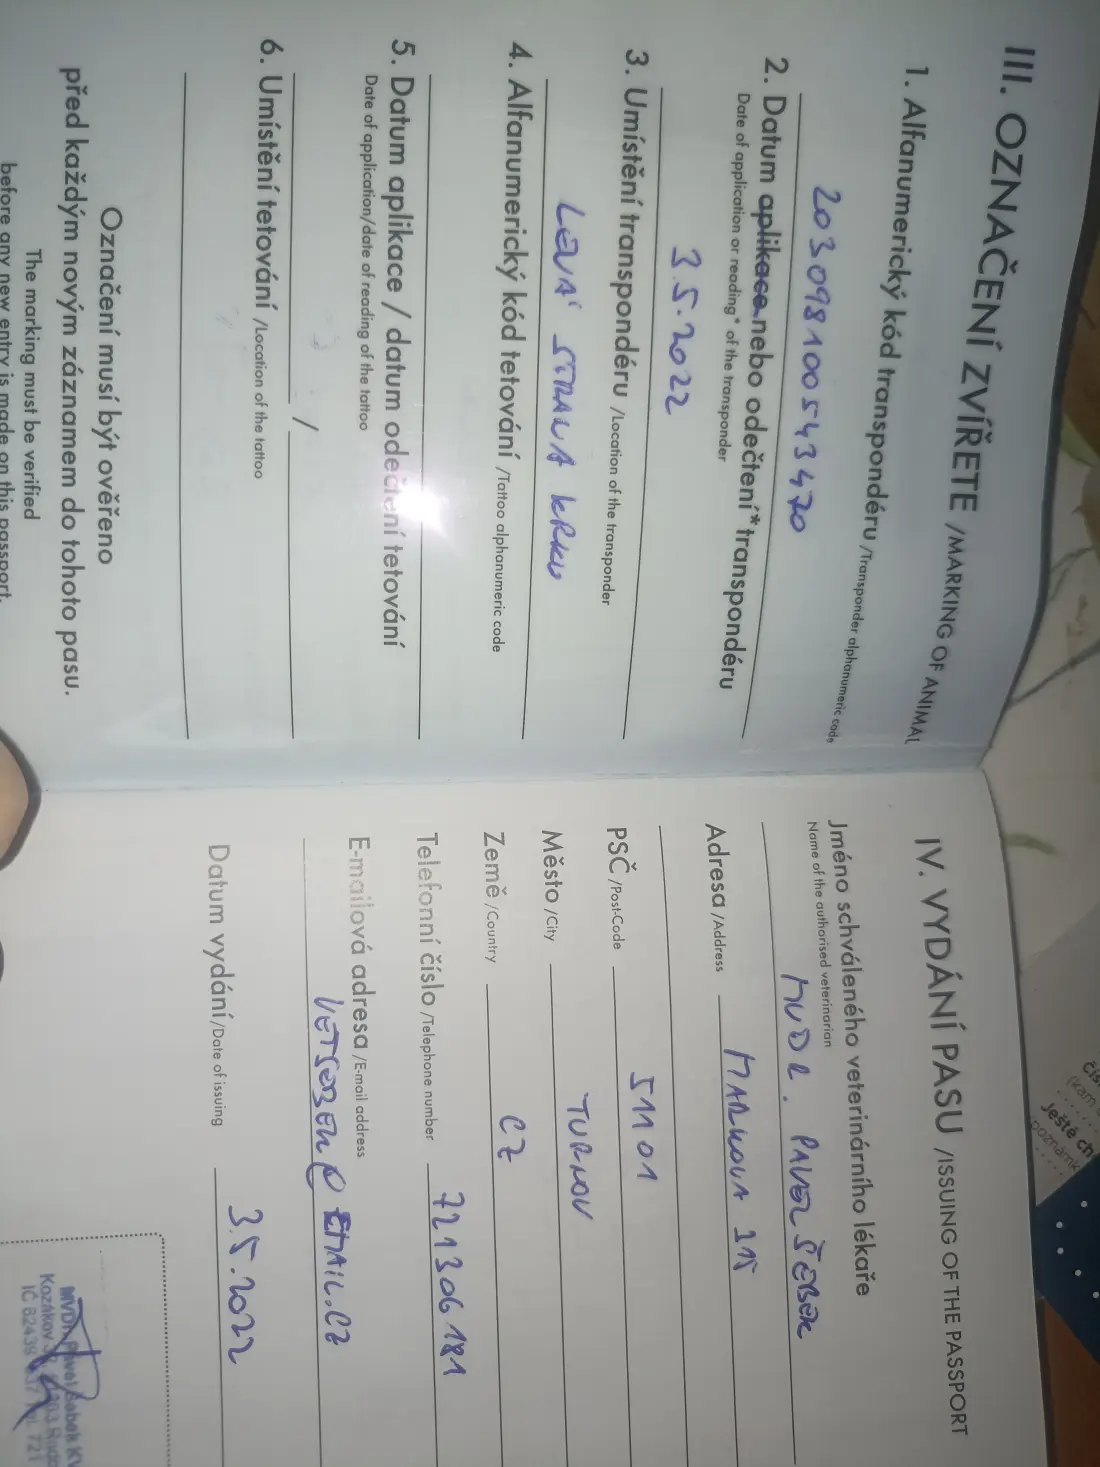 III. OZNAČENÍ ZVÍŘETE /MARKING OF ANIMAL
1. Alfanumerický kód transpondéru /Transponder alphanumeric code
203098100543470
2. Datum aplikace nebo odečtení* transpondéru
Date of application or reading* of the transponder
3.5.2022
3. Umístění transpondéru /Location of the transponder
LEVÁ STRANA KRKU
4. Alfanumerický kód tetování /Tattoo alphanumeric code
5. Datum aplikace / datum odečtení tetování
Date of application/date of reading of the tattoo
/
6. Umístění tetování /Location of the tattoo
Označení musí být ověřeno
před každým novým záznamem do tohoto pasu.
The marking must be verified
before any new entry is made on this passport.
IV. VYDÁNÍ PASU /ISSUING OF THE PASSPORT
Jméno schváleného veterinárního lékaře
Name of the authorised veterinarian
MVDR. PAVEL ŠEBEK
Adresa /Address MARKOVA 315
PSČ /Post-Code 51101
Město /City TURNOV
Země /Country CZ
Telefonní číslo /Telephone number 721306181
E-mailová adresa /E-mail address
VETSEBEK@EMAIL.CZ
Datum vydání /Date of issuing 3.5.2022
MVDr. Pavel Šebek
Kozákov
IČ
721
Ještě ch